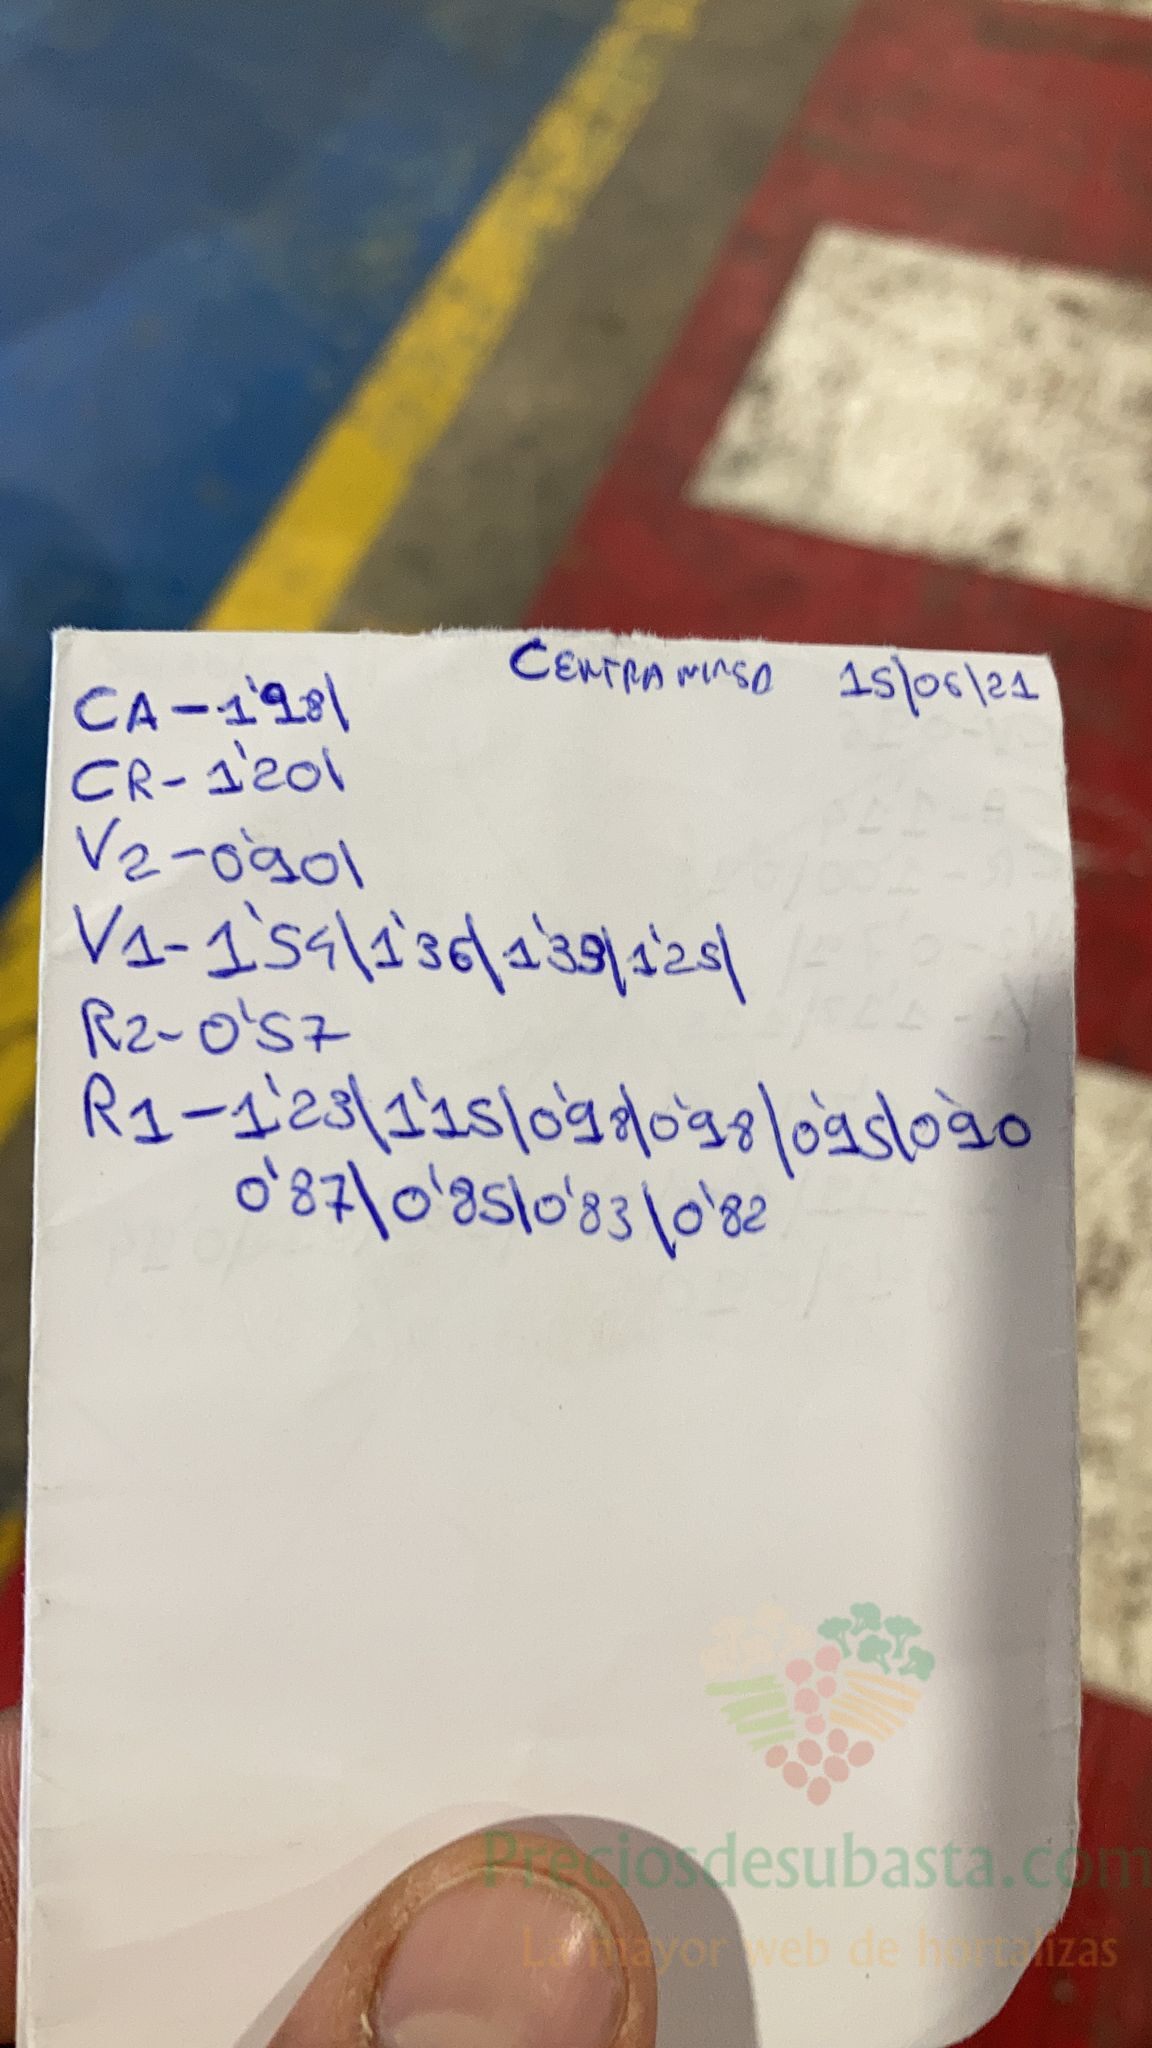 CENTRAMIRSA 15/06/21
CA-1'98\
CR-1'20\
V2-0'90\
V1-1'54\1'36\1'39\1'25\
R2-0'57
R1-1'23\1'15\0'98\0'98\0'95\0'90
0'87\0'85\0'83\0'82
Preciosdesubasta.com
La mayor web de hortalizas